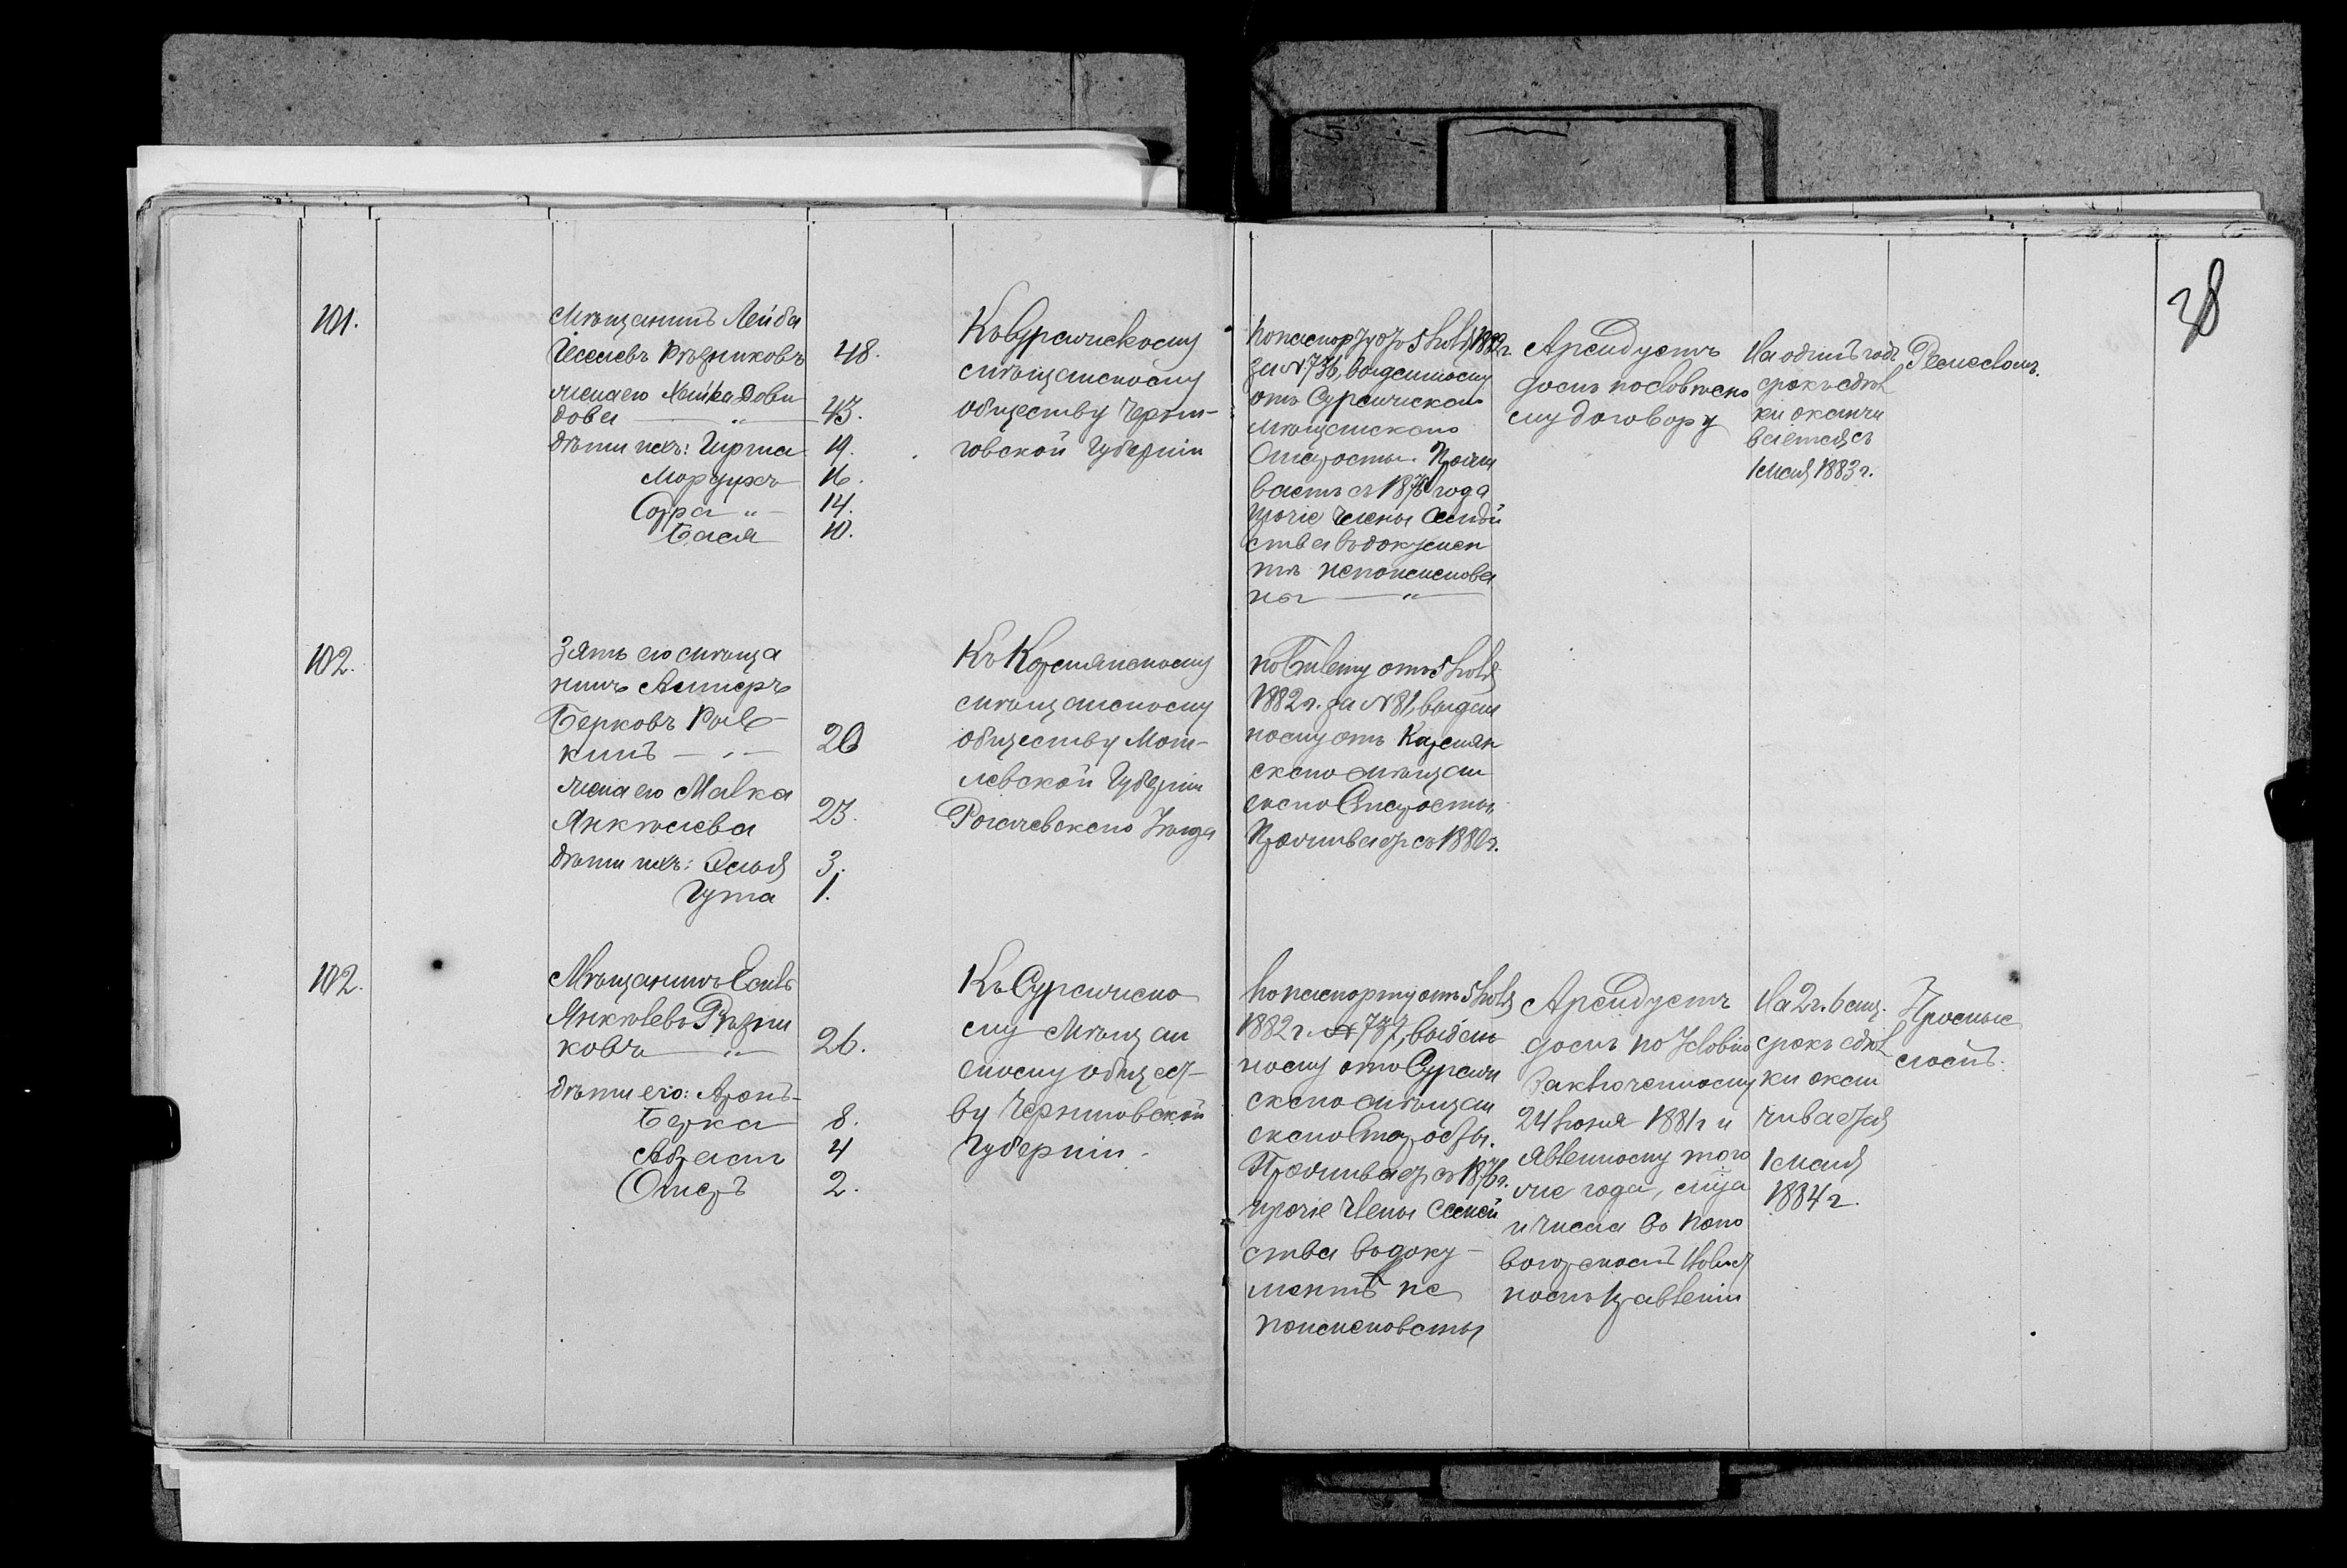 38
101.
Мѣщанинъ Лейба
Іосиевъ Рѣзниковъ 48.
жена его Хайка Дови
дова — „ — 43.
дѣти ихъ: Гирша 19.
Мордухъ 16.
Сора „ 14.
Бася 10.
Къ Суражскому
мѣщанскому
обществу Черни-
говской Губерніи
по паспорту отъ 5 Іюля 1882 г.
за № 736, выданному
отъ Суражскаго
мѣщанскаго
Старосты. Прожи
ваетъ съ 1876 года
прочіе члены Семѣй
ства въ докумен
тѣ непоименова
ны — „ —
Арендуетъ
домъ по словесно
му договору
На одинъ годъ
срокъ сдѣл
ки оканчи
вается съ
1 Мая 1883 г.
Ремесломъ.
102.
Зять его мѣща
нинъ Алтеръ
Берковъ Рыв-
кинъ — „ — 26
жена его Малка
Янкелева 23.
дѣти ихъ: Эсыя 3.
Гута 1.
Къ Кормянскому
мѣщанскому
обществу Моги-
левской Губерніи
Рогачевскаго Уѣзда
по билету отъ 5 Іюля
1882 г. за № 81, выдан
ному отъ Кормян
скаго мѣщан
скаго Старосты.
Проживаетъ съ 1880 г.
102.
Мѣщанинъ Есиль
Янкелевъ Рѣзни
ковъ — „ — 26.
дѣти его: Аронъ-
Берка 8.
Абрамъ 4
Ошеръ 2.
Къ Суражско
му Мѣщан
скому общест-
ву Черниговской
Губерніи.
По паспорту отъ 5 Іюля
1882 г. № 737, выдан
ному отъ Сураж
скаго мѣщан
скаго Старосты.
Проживаетъ съ 1876 г.
прочіе члены Семей
ства въ доку-
ментѣ не
поименованы
Арендуетъ
домъ по Условію
Заключенному
24 Іюня 1881 г и
явленному того
же года, м-ца
и числа въ
Волостномъ
Правленіи
На 2 г. 6 мц.
срокъ сдѣл
ки окан
чивается
1 Мая
1884 г.
Промыс
ломъ.